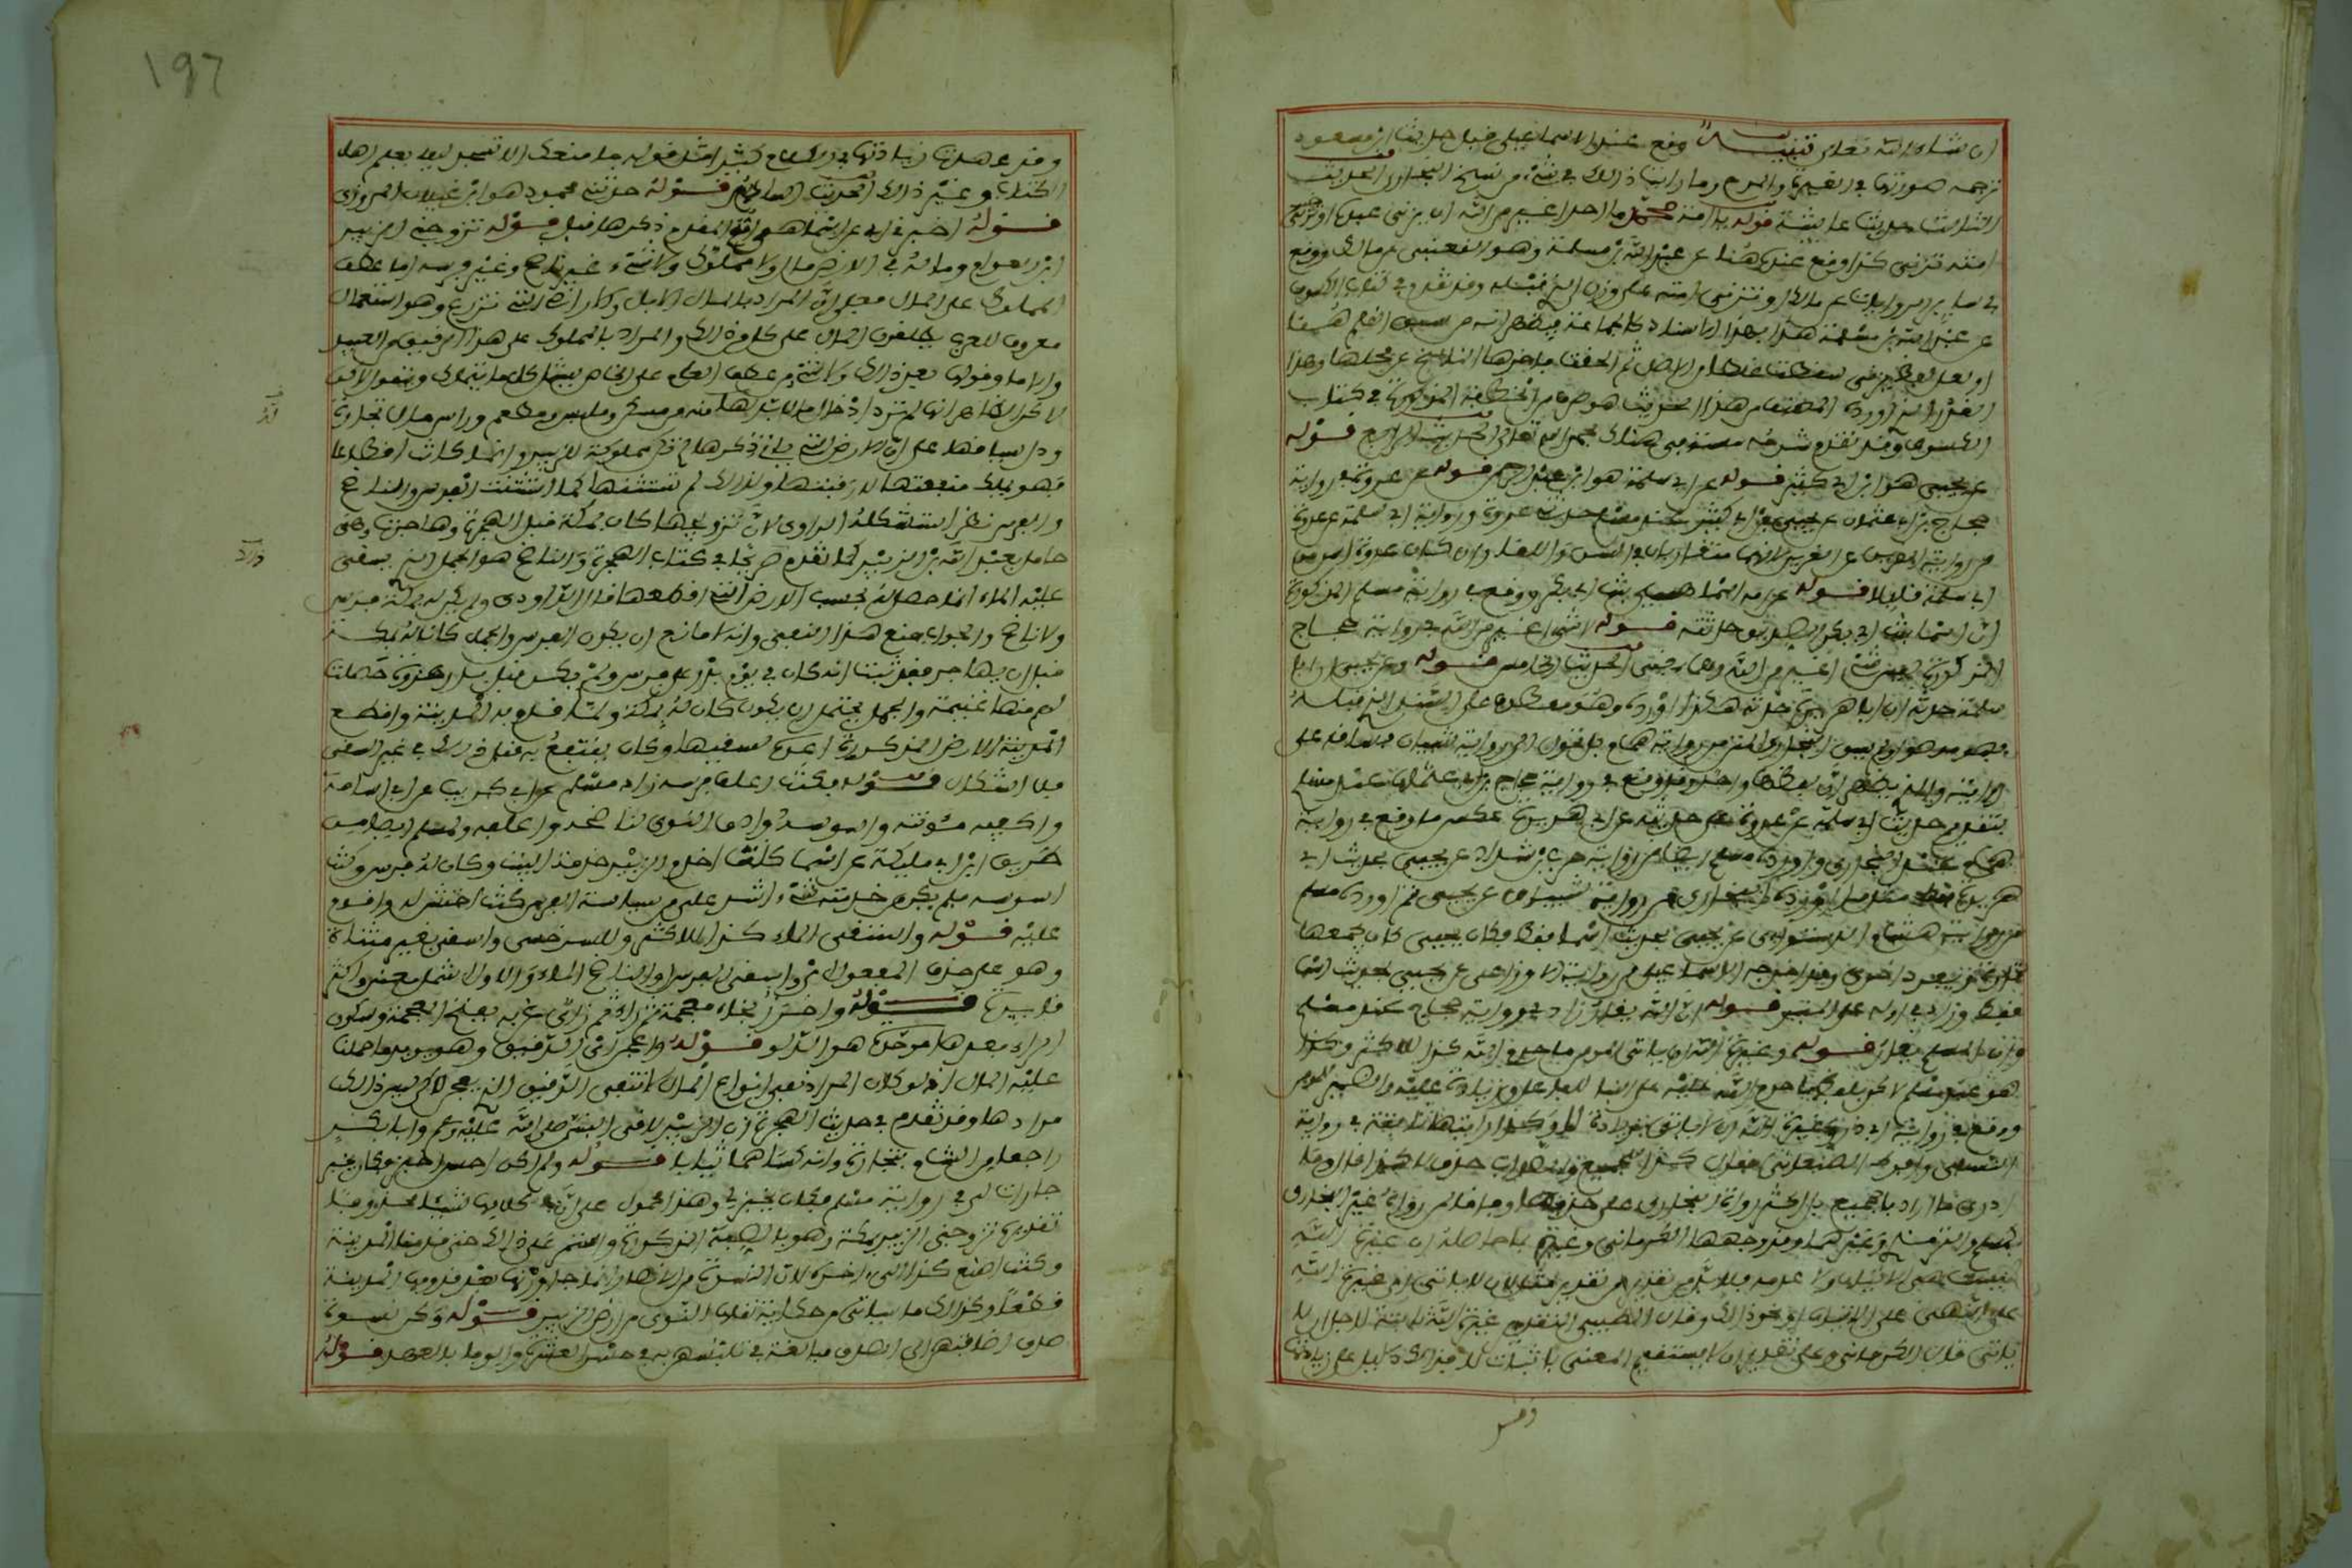 ان شاء الله تعلى تنبيه وقع عند الاسماعيلى قبل حديث ابن مسعود
ترجمة صورتها في الغيرة والمدح وما رايت ذلك في شيء من نسخ البخارى الحديث
الثالث حديث عائشة قوله يا امة محمد ما احد اغير من الله ان يزني عبده او تزني
امته تزني كذا وقع عنده هنا عن عبد الله بن مسلمة وهو القعنبى عن مالك ووقع
في ساير الروايات عن مالك او تزني امته على وزان الذي قبله وقد تقدم في كتاب الكسوف
عن عبد الله بن مسلمة هذا بهذا الاسناد كالجماعة فيظهر انه من سبق القلم هنا
او لعل لفظة تزني سقطت غلطا من الاصل ثم الحقت فاخرها الناسخ عن محلها وهذا
القدر الذي اورده المصنف من هذا الحديث هو طرف من الخطبة المذكورة في كتاب
الكسوف وقد تقدم شرحه مستوفى هناك بحمد الله تعالى الحديث الرابع قوله
عن يحيى هو ابن ابي كثير قوله عن ابي سلمة هو ابن عبد الرحمن قوله عن عروة في رواية
حجاج بن ابي عثمان عن يحيى بن ابي كثير عند مسلم حدثني عروة ورواية ابي سلمة عن عروة
من رواية القرين عن القرين لانهما متقاربان في السن واللقاء وان كان عروة اسن من
ابي سلمة قليلا قوله عن امه اسما هي بنت ابي بكر ووقع في رواية مسلم المذكورة
ان اسما بنت ابي بكر الصديق حدثته قوله لا شيء اغير من الله في رواية حجاج
المذكورة ليس شيء اغير من الله وهما بمعنى الحديث الخامس قوله وعن يحيى ان ابا
سلمة حدثه ان ابا هريرة حدثه هكذا اورده وهو معطوف على السند الذي قبله
فهو موصول ولم يسق البخارى المتن من رواية همام بل تحول الى رواية شيبان فساقه على
روايته والذي يظهر ان لفظهما واحد وقد وقع في رواية حجاج بن ابي عثمان عند مسلم
بتقديم حديث ابي سلمة عن عروة على حديثه عن ابي هريرة عكس ما وقع في رواية
همام عند البخارى واورده مسلم ايضا من رواية حرب بن شداد عن يحيى بحديث ابي
هريرة فقط مثل ما اورده البخارى من رواية شيبان عن يحيى ثم اورده مسلم
من رواية هشام الدستوائى عن يحيى بحديث اسما فقط فكان يحيى كان يجمعهما
تارة ويفرد اخرى وقد اخرجه الاسماعيلى من رواية الاوزاعى عن يحيى بحديث اسما
فقط وزاد في اوله على المنبر قوله ان الله يغار زاد في رواية حجاج عند مسلم
وان المومن يغار قوله وغيرة الله ان ياتي المومن ما حرم الله كذا للاكثر وكذا
هو عند مسلم لاكن بلفظ ما حرم عليه على البنا للفاعل وزيادة عليه والضمير للمومن
ووقع في رواية ابي ذر وغيرة الله ان لا ياتي بزيادة لا وكذا رايتها ثابتة في رواية
النسفى وافرط الصغانى فقال كذا للجميع والصواب حذف لا كذا قال وما
ادرى ما اراد بالجميع بل اكثر رواة البخارى على حذفها وفاقا لمن رواه غير البخارى
كمسلم والترمذى وغيرهما وقد وجهها الكرمانى وغيره بما حاصله ان غيرة الله
ليست هي الاتيان ولا عدمه فلا بد من تقدير مثل لان لا ياتي اى غيرة الله
على النهى عن الاتيان او نحو ذلك وقال الطيبى التقدير غيرة الله ثابتة لاجل ان لا
ياتي قال الكرمانى وعلى تقدير ان لا يستقيم المعنى باثبات لا فذلك دليل على زيادتها
وقد
١٩٦
وقد عهدت زيادتها في الكلام كثيرا مثل قوله ما منعك الا تسجد ليلا يعلم اهل
الكتاب وغير ذلك الحديث السادس قوله حدثني محمود هو ابن غيلان المروزى
قوله اخبرني ابي عن اسما هي امه المقدم ذكرها قبل قوله تزوجني الزبير
ابن العوام وماله في الارض مال ولا مملوك ولا شيء غير ناضح وغير فرسه اما عطف
المملوك على المال فعلى ان المراد بالمال الابل وكالاراضى التي تزرع وهو استعمال
معروف للعرب يطلقون المال على كل من ذلك والمراد بالمملوك على هذا الرقيق من العبيد
والاما وقولها بعد ذلك ولا شيء من عطف العام على الخاص يشمل كل ما يتملك ويتمول لاكن
لاكن الظاهر انها لم ترد ادخال ما لا بد له منه من مسكن وملبس ومطعم وراس مال تجارة
ودل سياقها على ان الارض التي ياتي ذكرها لم تكن مملوكة للزبير وانما كانت اقطاعا
فهو يملك منفعتها لا رقبتها ولذلك لم تستثنها كما استثنت الفرس والناضح
والفرس نظر استشكله الداودى لان تزويجها كان بمكة قبل الهجرة وهاجرت وهى
حامل بعبد الله بن الزبير كما تقدم صريحا في كتاب الهجرة والناضح هو الجمل الذي يسقى
عليه الماء انما حصل له بسبب الارض التي اقطعها قال الداودى ولم يكن له بمكة فرس
ولا ناضح والجواب منع هذا النفى وانه لا مانع ان يكون الفرس والجمل كانا له بمكة
قبل ان يهاجر فقد ثبت انه كان في يوم بدر على فرس ولم يكن قبل بدر غزوة حصلت
لهم منها غنيمة والجمل يحتمل ان يكون كان له بمكة ولما قدم به المدينة واقطع
المدينة الارض المذكورة اعده لسقيها وكان ينتفع به قبل ذلك في غير السقى
فلا اشكال قوله فكنت اعلف فرسه زاد مسلم عن ابي كريب عن ابي اسامة
واكفيه مئونته واسوسه وادق النوى لناضحه واعلفه ولمسلم ايضا من
طريق ابن ابي مليكة عن اسما كنت اخدم الزبير خدمة البيت وكان له فرس وكنت
اسوسه فلم يكن من خدمته شيء اشد على من سياسة الفرس كنت احتش له واقوم
عليه قوله واستقى الماء كذا للاكثر وللسرخسى واسقى بغير مثناة
وهو على حذف المفعول اى واسقى الفرس او الناضح الماء والاول اشمل معنى واكثر
فايدة قوله واخرز بخاء معجمة ثم راء ثم زاى غربه بفتح المعجمة وسكون
الراء بعدها موحدة هو الدلو قوله واعجن اى الدقيق وهو يويد ما حملنا
عليه المال اذ لو كان المراد نفى انواع المال لانتفى الدقيق الذي يعجن لاكن ليس ذلك
مرادها وقد تقدم في حديث الهجرة ان الزبير لاقى النبي صلى الله عليه وسلم وابا بكر
راجعا من الشام بتجارة وانه كساهما ثيابا قوله ولم اكن احسن اخبز وكان يخبز
جارات لى في رواية مسلم فكان يخبز لي وهذا محمول على ان في كلامها شيئا محذوفا
تقديره تزوجني الزبير بمكة وهو بالصفة المذكورة واستمر على ذلك حتى قدمنا المدينة
وكنت اصنع كذا الى اخره لان النسوة من الانصار انما جاورنها بعد قدومها المدينة
قطعا وكذلك ما سياتي من حكاية نقلها النوى من ارض الزبير قوله وكن نسوة
صدق اضافتهن الى الصدق مبالغة في تلبسهن به في حسن العشرة والوفا بالعهد قوله